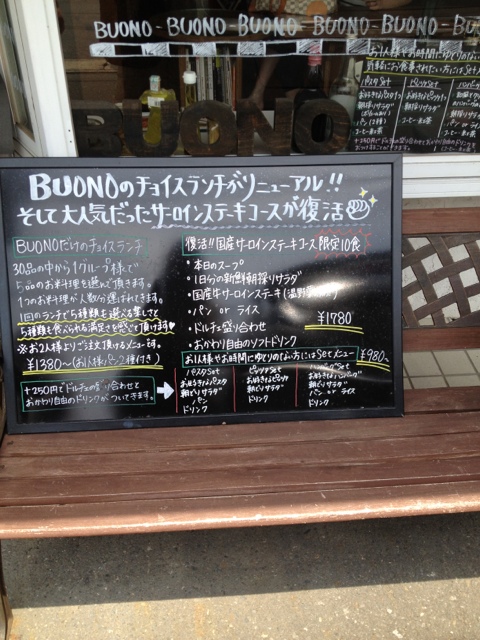 BUONO-BUONO-BUONO-BUONO-BUONO-BU
BUONO
お1人様やお時間にゆとりのない
パスタSet
ピッツァSet
BUONOのチョイスランチがリニューアル!!
そして大人気だったサーロインステーキコースが復活
BUONOだけのチョイスランチ
30品の中から1グループ様で
5品のお料理を選んで頂きます。
1つのお料理が人数分運ばれてきます。
1回のランチで5種類も選べる楽しさと
5種類も食べられる満足さを感じて頂けます♥
※お2人様よりご注文頂けるメニューです。
¥1380〜(お1人様パン2種付き)
+250円でドルチェの盛り合わせと
おかわり自由のドリンクがついてきます。
復活!!国産サーロインステーキコース 限定10食
・本日のスープ
・1日分の新鮮朝採りサラダ
・国産牛サーロインステーキ
・パン or ライス
・ドルチェ盛り合わせ
・おかわり自由のソフトドリンク
¥1780
お1人様やお時間にゆとりのない方にはSetメニュー ¥980〜
パスタSet
お好きなパスタ
朝どりサラダ
パン
ドリンク
ピッツァSet
お好きなピッツァ
朝どりサラダ
ドリンク
ハンバーグSet
お好きなハンバーグ
朝どりサラダ
パン or ライス
ドリンク